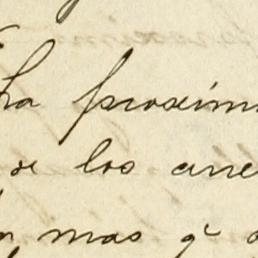 ha proxim
de los ane
mas q̃